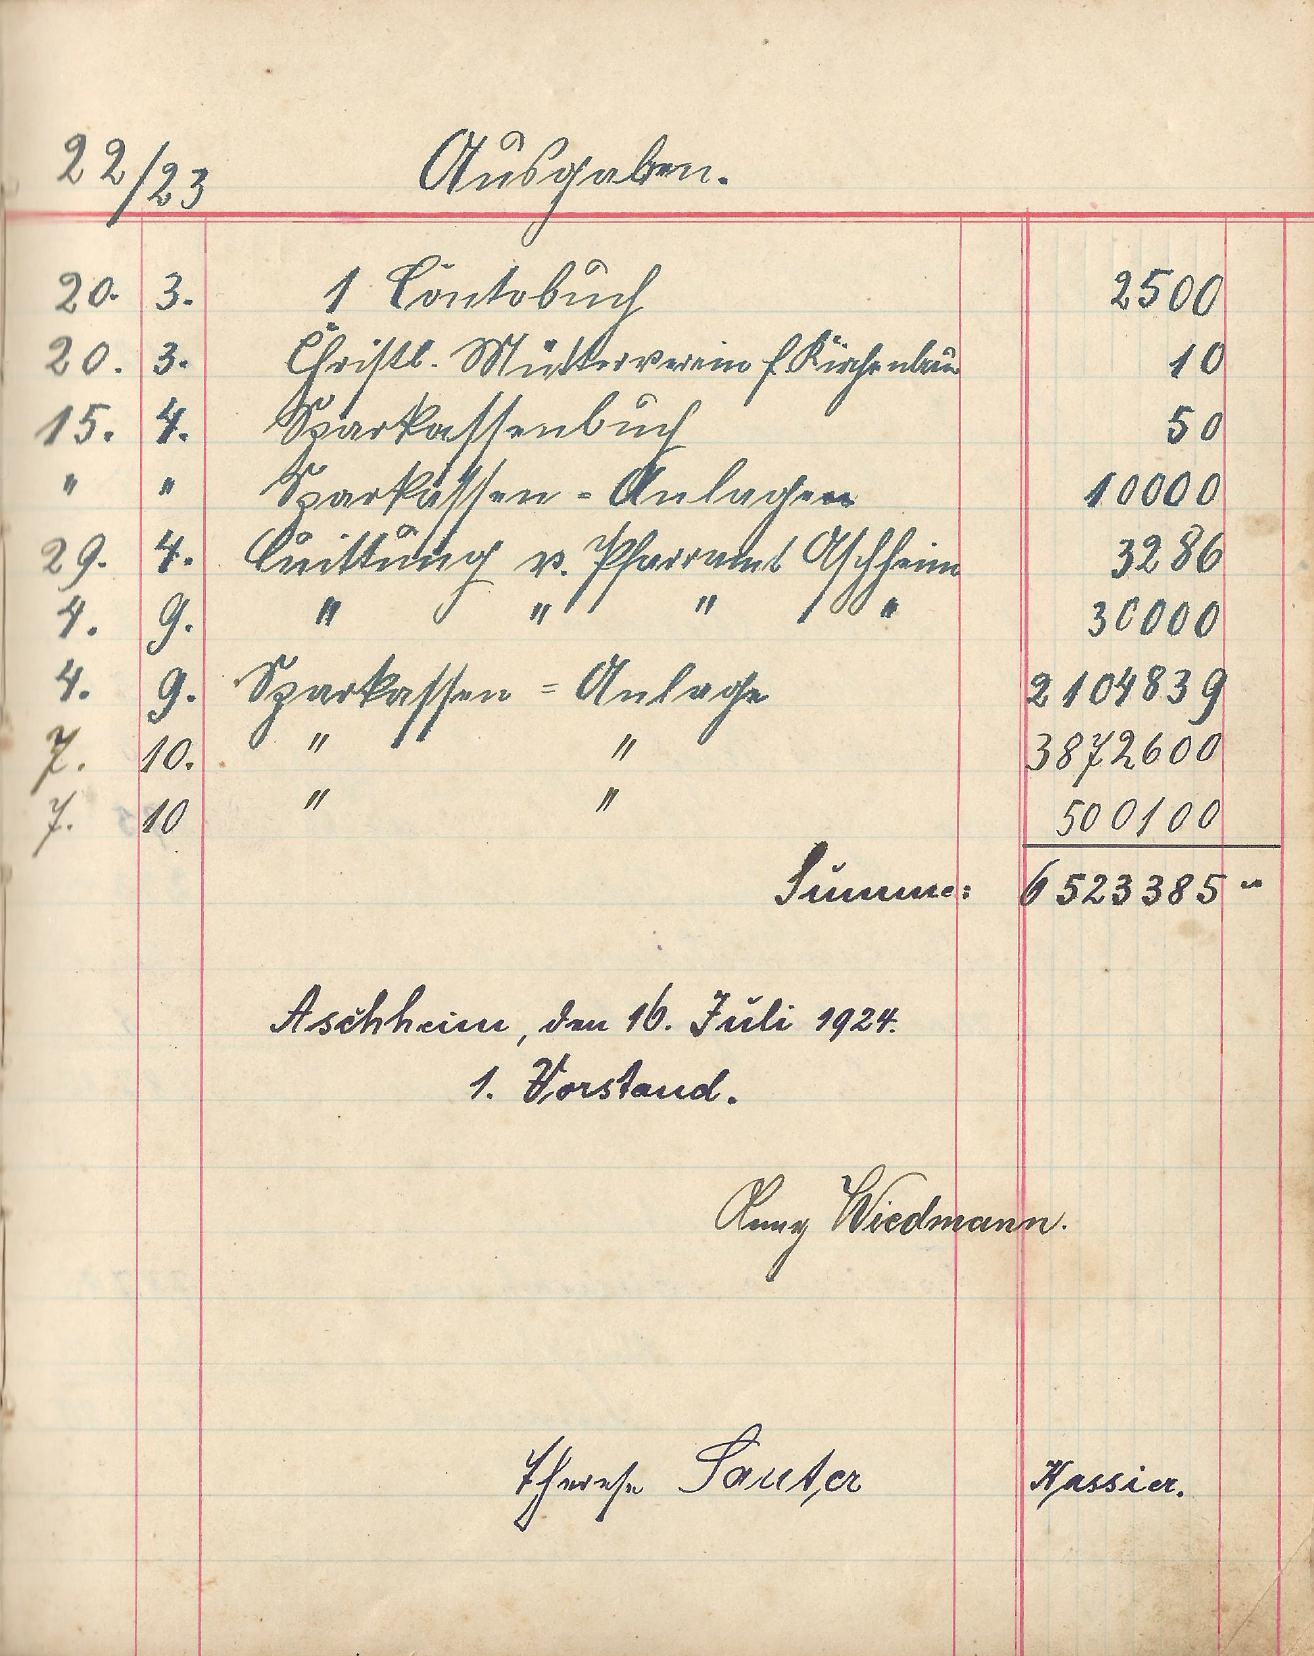 22/23 Ausgaben.
20. 3. 1 Contobuch 2500
20. 3. Christl. Mütterverein f. Kirchenbau 10
15. 4. Sparkassenbuch 50
" " Sparkassen = Anlagen 10000
29. 4. Quittung v. Pfarramt Aschheim 3286
4. 9. " " " " 30000
4. 9. Sparkassen = Anlage 2104839
7. 10. " " 3872600
7. 10 " " 500100
Summe: 6523385 "
Aschheim, den 16. Juli 1924.
1. Vorstand.
Wiedmann.
Therese Sauter Kassier.